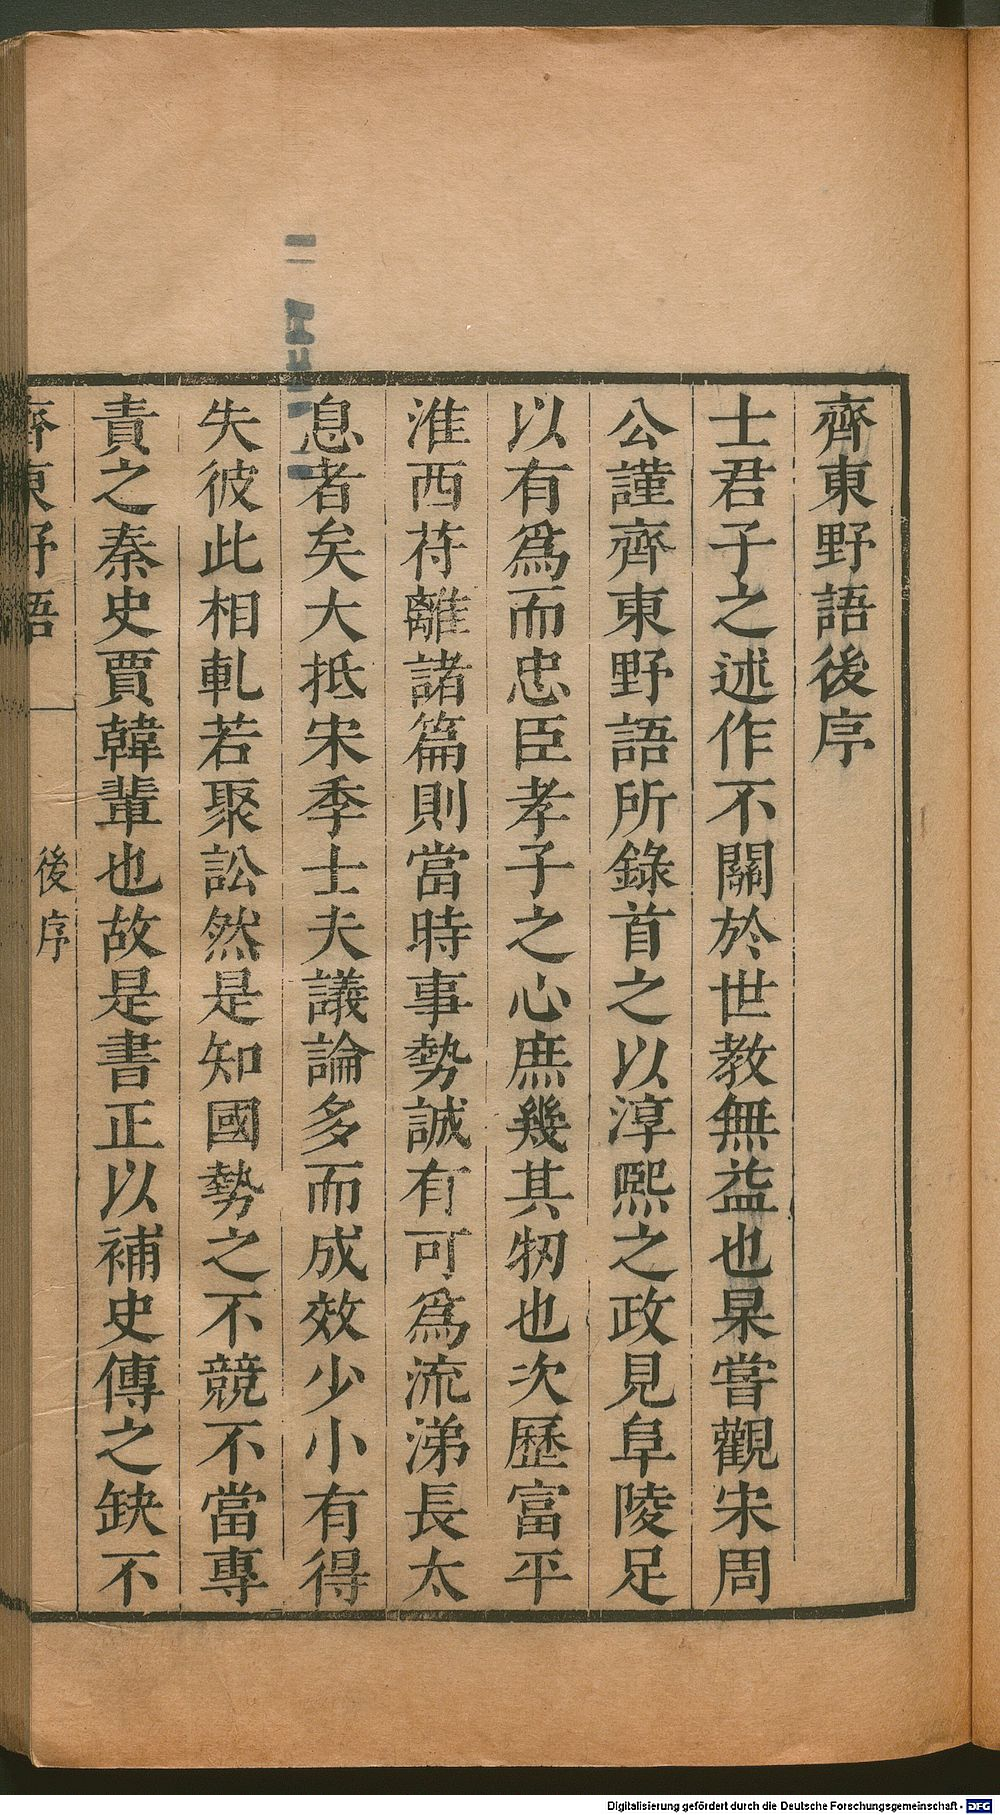 齊東野語後序
士君子之述作不關於世教無益也杲嘗觀宋周
公謹齊東野語所錄首之以淳熙之政見阜陵足
以有爲而忠臣孝子之心庶幾其牣也次歷富平
淮西苻離諸篇則當時事勢誠有可爲流涕長太
息者矣大抵宋季士夫議論多而成效少小有得
失彼此相軋若聚訟然是知國勢之不競不當專
責之秦史賈韓輩也故是書正以補史傳之缺不
齊東野語
後序
Digitalisierung gefördert durch die Deutsche Forschungsgemeinschaft - DFG